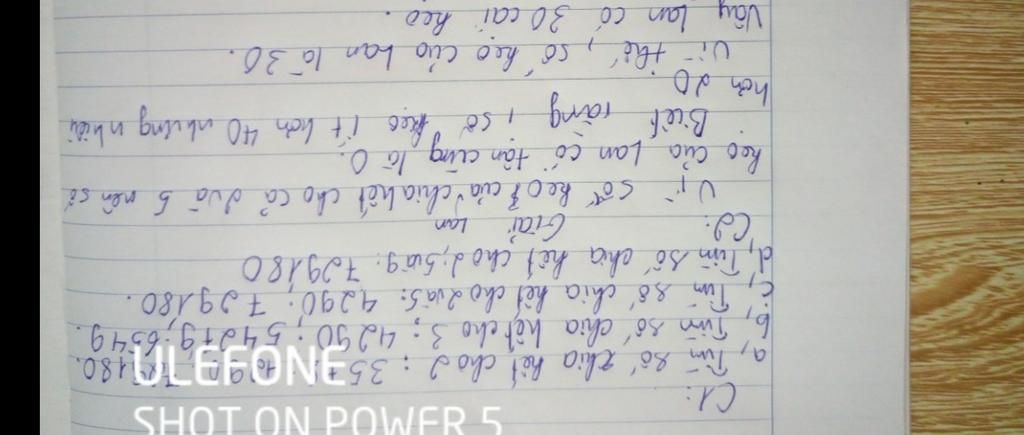 C1:
a, Tìm số chia hết cho 2 : 35 180.
b, Tìm số chia hết cho 3 : 4290 ; 54279 ; 6549.
c, Tìm số chia hết cho 2 và 5: 4290 ; 729180.
d, Tìm số chia hết cho 2; 5 và 9: 729180
C2: Giải
Vì số kẹo của Lan chia hết cho cả 2 và 5 nên số
kẹo của Lan có tận cùng là 0.
Biết rằng , số kẹo ít hơn 40 nhưng nhiều
hơn 20
Vì thế , số kẹo của Lan là 30.
Vậy Lan có 30 cái kẹo.
ULEFONE
SHOT ON POWER 5